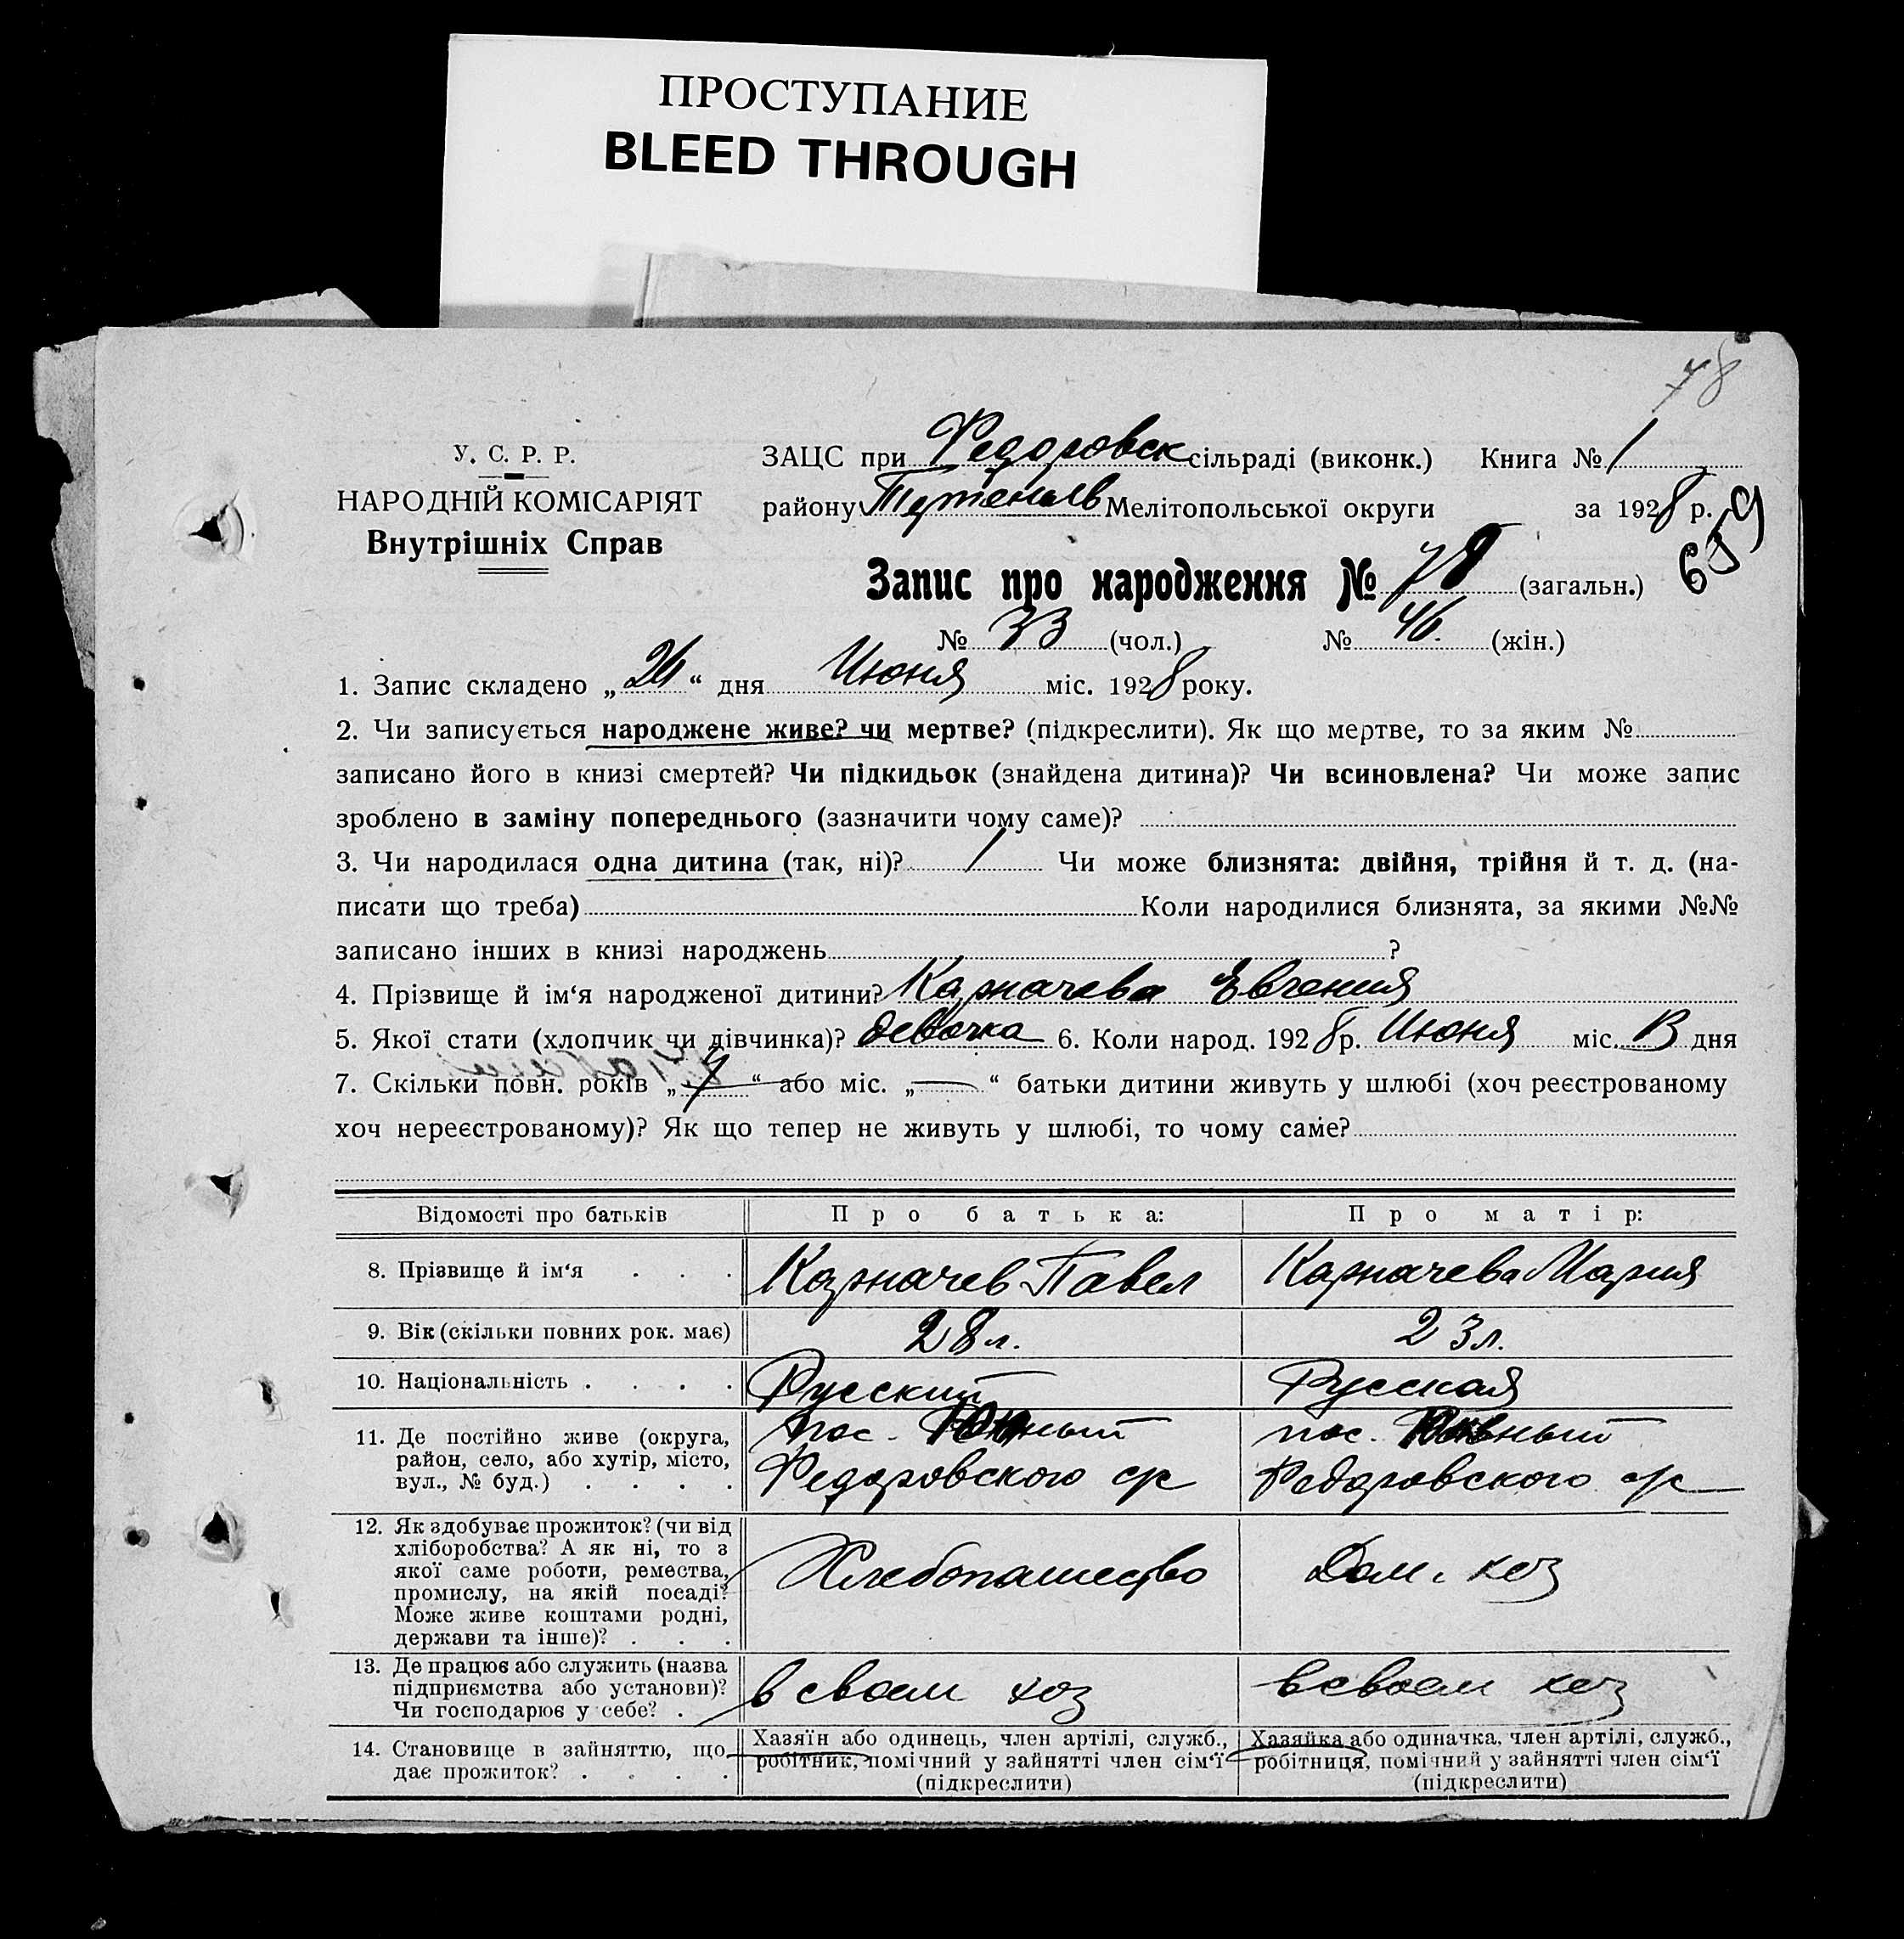 ПРОСТУПАНИЕ
BLEED THROUGH
78
У. С. Р. Р.
НАРОДНІЙ КОМІСАРІЯТ
Внутрішніх Справ
ЗАЦС при Федоровск сільраді (виконк.) Книга № 1
району Мелітопольської округи за 1928 р.
659
Запис про народження № 78 (загальн.)
№ 33 (чол.) № 46. (жін.)
1. Запис складено „26“ дня Июня міс. 1928 року.
2. Чи записується народжене живе? чи мертве? (підкреслити). Як що мертве, то за яким №
записано його в книзі смертей? Чи підкидьок (знайдена дитина)? Чи всиновлена? Чи може запис
зроблено в заміну попереднього (зазначити чому саме)?
3. Чи народилася одна дитина (так, ні)? 1 Чи може близнята: двійня, трійня й т. д. (на-
писати що треба) Коли народилися близнята, за якими №№
записано інших в книзі народжень ?
4. Прізвище й ім‘я народженої дитини? Карначева Евгения
5. Якої стати (хлопчик чи дівчинка)? девочка 6. Коли народ. 1928 р. Июня міс. 13 дня
7. Скільки повн. років „7“ або міс. „—“ батьки дитини живуть у шлюбі (хоч реєстрованому
хоч нереєстрованому)? Як що тепер не живуть у шлюбі, то чому саме?
Відомості про батьків Про батька: Про матір:
8. Прізвище й ім‘я . . . Карначев Павел Карначева Мария
9. Вік (скільки повних рок. має) 28 л. 23 л.
10. Національність . . . . Русский Русская
11. Де постійно живе (округа,
район, село, або хутір, місто,
вул., № буд.) . . . .
пос.
Федоровского с/с
пос.
Федоровского с/с
12. Як здобуває прожиток? (чи від
хліборобства? А як ні, то з
якої саме роботи, ремества,
промислу, на якій посаді?
Може живе коштами родні,
держави та інше)? . . .
Хлебопашество
Дом. хоз
13. Де працює або служить (назва
підприємства або установи)?
Чи господарює у себе? .
в своем хоз
в своем хоз
14. Становище в зайняттю, що
дає прожиток? . . . .
Хазяїн або одинець, член артілі, служб.,
робітник, помічний у зайнятті член сім‘ї
(підкреслити)
Хазяйка або одиначка, член артілі, служб.,
робітниця, помічний у зайнятті член сім‘ї
(підкреслити)